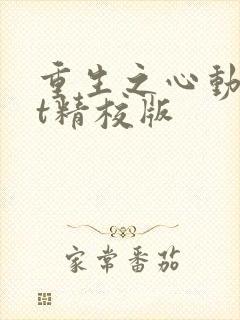 重生之心動
t精校版
家常番茄